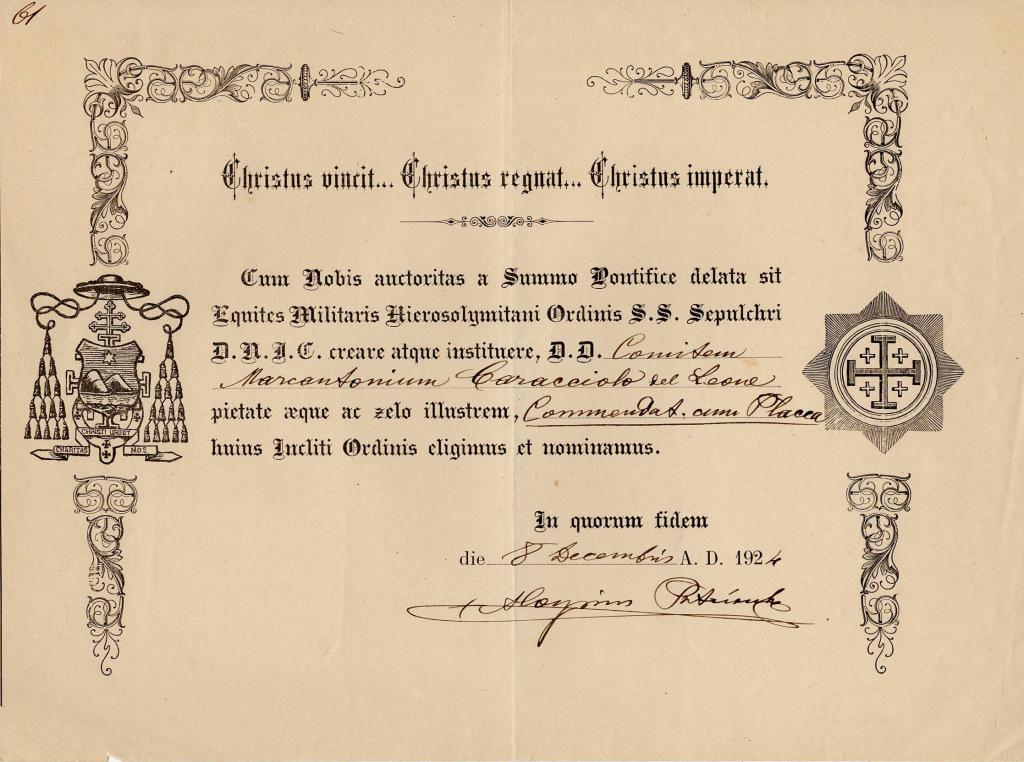 61
Christus vincit... Christus regnat... Christus imperat.
Cum Nobis auctoritas a Summo Pontifice delata sit
Equites Militaris Hierosolymitani Ordinis S.S. Sepulchri
D. N. J. C. creare atque instituere, D. D. Comitem
Marcantonium Caracciolo del Leone
pietate æque ac zelo illustrem, Commendat. cum Placca
huius Incliti Ordinis eligimus et nominamus.
CHRISTI URGET
CHARITAS NOS
In quorum fidem
die 8 Decembris A. D. 1924
+ Aloysius Patriarcha